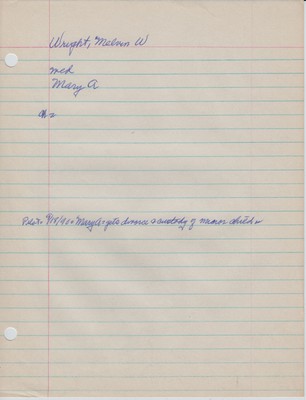 Wright, Melvin W
med
Mary A.
gets divorce & custody of minor child